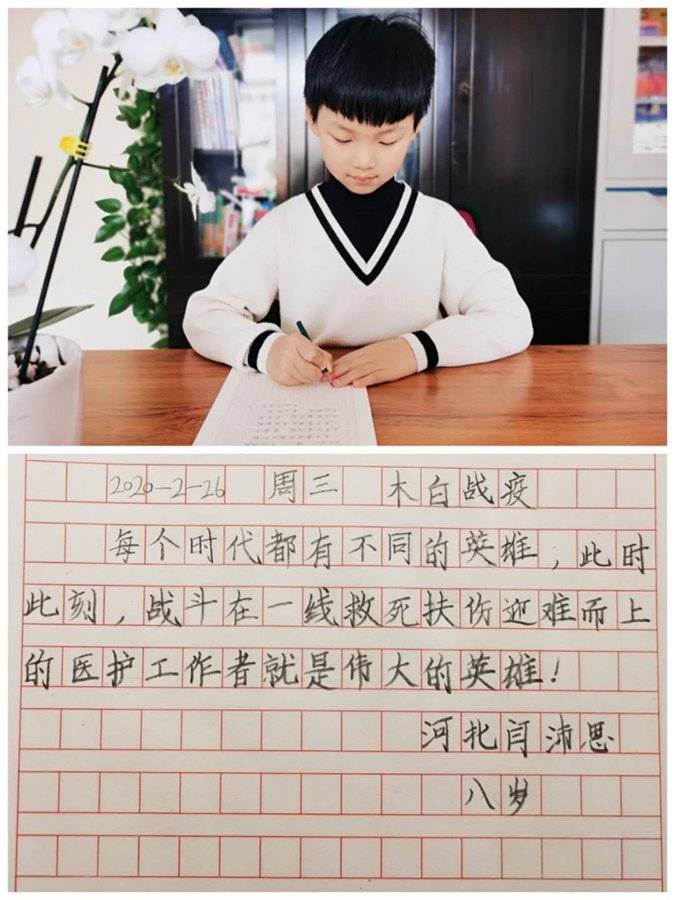 2020-2-26 周三 木白战疫
每个时代都有不同的英雄，此时
此刻，战斗在一线救死扶伤迎难而上
的医护工作者就是伟大的英雄！
河北闫沛思
八岁